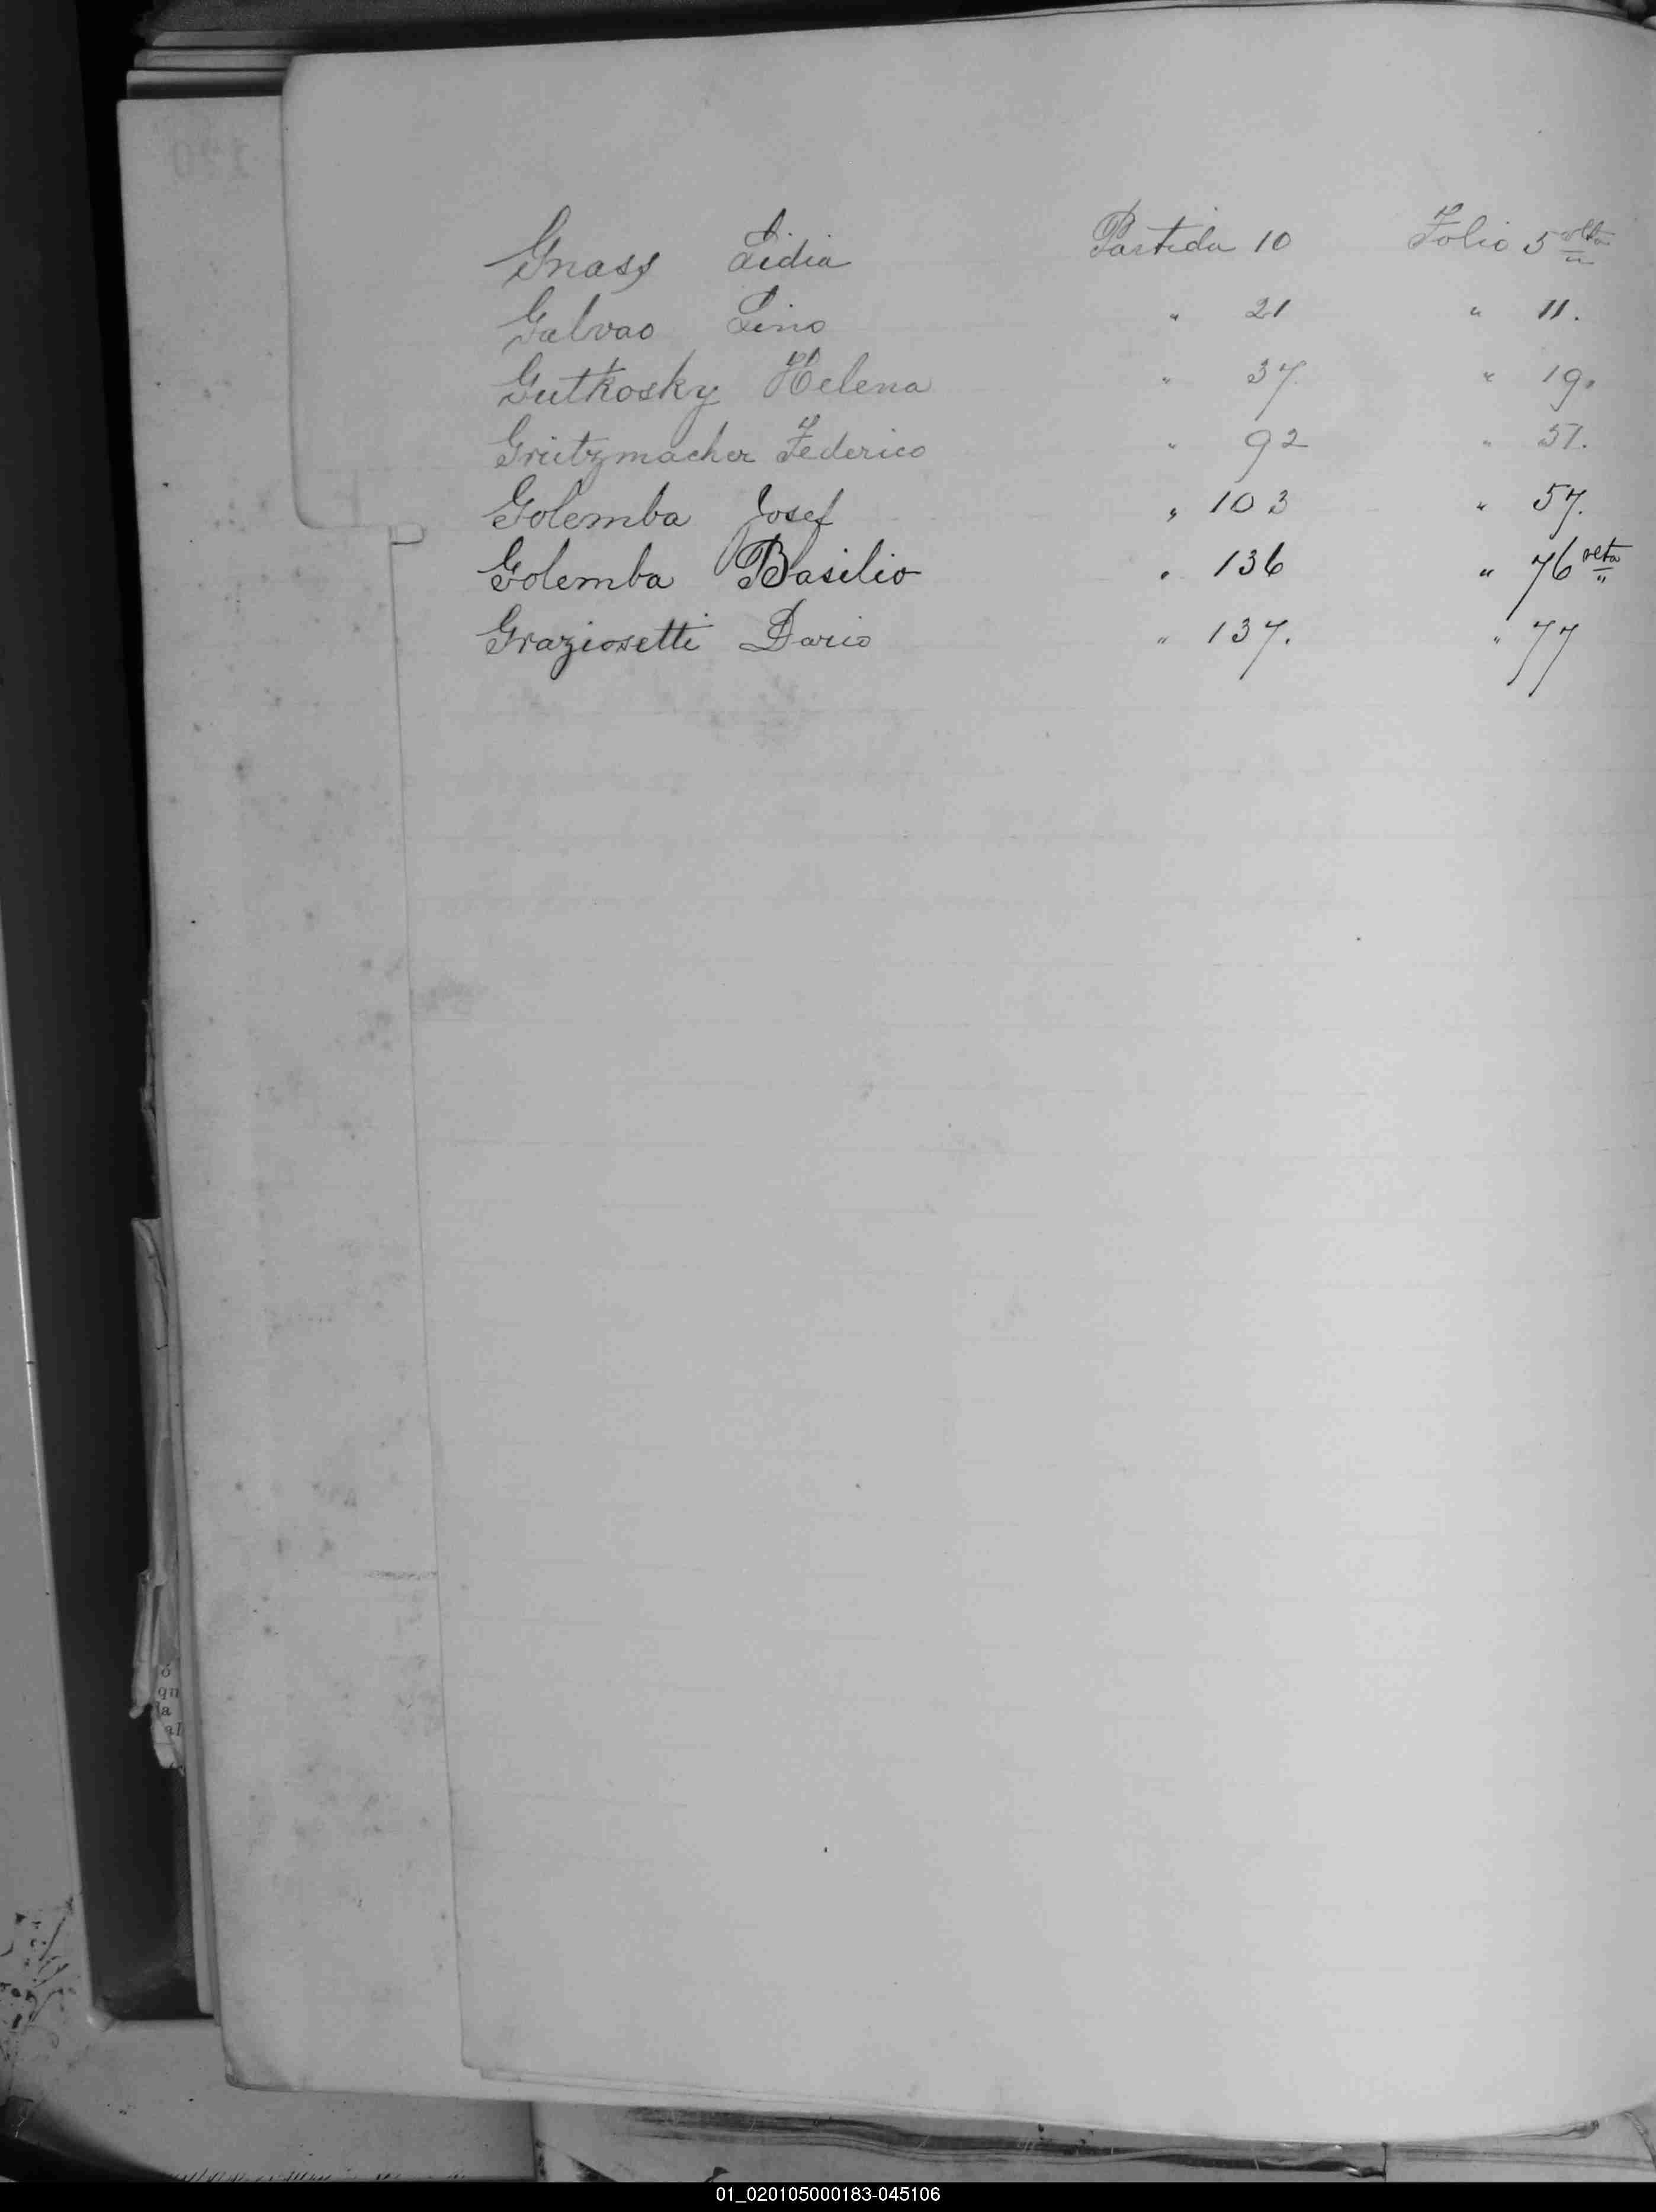 Gnass Lidia Partida 10 Folio 5 vlta
Galvao Lino " 21 " 11.
Gutkosky Helena " 37. " 19.
Grützmacher Federico " 92 " 51.
Golemba Josef " 103 " 57.
Golemba Basilio " 136 " 76 vlta
Graziosetti Dario " 137. " 77
ó
qu
la
al
01_020105000183-045106